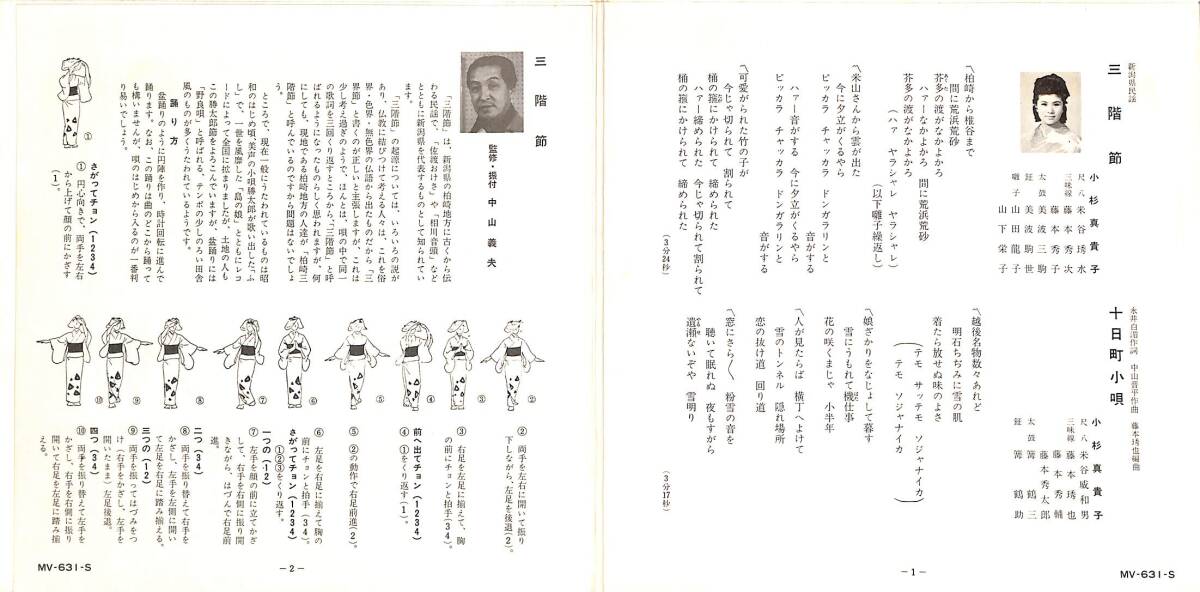 新潟県民謡
三階節
小杉真貴子
尺八 米谷琇水
三味線 藤本秀次
藤本秀子
太鼓 美波三駒
鉦 美波駒世
囃子 山田龍子
山下栄子
〽柏崎から椎谷まで
間に荒浜荒砂
芥多の渡がなかよかろ
ハァーなかよかろ 間に荒浜荒砂
芥多の渡がなかよかろ
(ハァ ヤラシャレ ヤラシャレ)
(以下囃子繰返し)
〽米山さんから雲が出た
今に夕立がくるやら
ピッカラ チャッカラ ドンガラリンと
音がする
ハァー音がする 今に夕立がくるやら
ピッカラ チャッカラ ドンガラリンと
音がする
〽可愛がられた竹の子が
今じゃ切られて 割られて
桶の箍にかけられて 締められた
ハァー締められた 今じゃ切られて割られて
桶の箍にかけられて 締められた
(3分24秒)
永井白湄作詞 中山晋平作曲 藤本琇也編曲
十日町小唄
小杉真貴子
尺八 米谷威和男
三味線 藤本琇也
藤本秀輔
藤本秀太郎
太鼓 篝鶴三
鉦 篝鶴助
〽越後名物数々あれど
明石ちぢみに雪の肌
着たら放せぬ味のよさ
(テモ サッテモ ソジャナイカ
テモ ソジャナイカ)
〽娘ざかりをなじょして暮す
雪にうもれて機仕事
花の咲くまじゃ 小半年
〽人が見たらば 横丁へよけて
雪のトンネル 隠れ場所
恋の抜け道 回り道
〽窓にさら〳〵 粉雪の音を
聴いて眠れぬ 夜もすがら
遣瀬ないぞや 雪明り
(3分17秒)
－1－
MV-631-S
三階節
監修・振付 中山義夫
「三階節」は、新潟県の柏崎地方に古くから伝
わる民謡で、「佐渡おけさ」や「相川音頭」など
とともに新潟県を代表するものとして知られてい
ます。
「三階節」の起源については、いろいろの説が
あり、仏教に結びつけて考える人々は、これを俗
界・色界・無色界の仏語から出たものだから「三
界節」と書くのが正しいと主張しますが、これは
少し考え過ぎのようで、ほんとは、唄の中で同一
の歌詞を三回くり返すところから、「三階節」と呼
ばれるようになったものらしく思われますが、何
にしても、現地である柏崎地方の人達が「柏崎三
階節」と呼んでいるのですから問題はないでしょ
う。
ところで、現在一般にうたわれているものは昭
和のはじめ頃、美声の小唄勝太郎が歌い出した、ふ
しで、一世を風靡した「島の娘」とともにレコ
ードによって全国に拡まりましたが、土地の人も
この勝太郎節をよろこんでいますが、盆踊りには
「野良唄」と呼ばれる、テンポの少しのろい田舎
風のものが多くうたわれているようです。
踊り方
盆踊りのように円陣を作り、時計回転に進んで
踊ります。なお、この踊りは曲のどこから踊って
も構いませんが、唄のはじめから入るのが一番判
り易いでしょう。
①
さがってチョン(1234)
① 円心向きで、両手を左右
から上げて顔の前にかざす
(1)。
⑩ ⑨ ⑧ ⑦ ⑥ ⑤ ④ ③ ②
② 両手を左右に開いて振り
下しながら、左足を後退(2)。
③ 右足を左足に揃えて、胸
の前にチョンと拍手(34)。
前へ出てチョン(1234)
④ ①をくり返す(1)。
⑤ ②の動作で右足前進(2)。
⑥ 左足を右足に揃えて胸の
前にチョンと拍手(34)。
さがってチョン(1234)
①②③をくり返す。
一つの(12)
⑦ 左手を顔の前に立てかざ
して、右手を右側に振り開
きながら、はづんで右足前
進。
二つ(34)
⑧ 両手を振り替えて右手を
かざし、左手を左側に開い
て左足を右足に踏み揃える。
三つの(12)
⑨ 両手を振ってはづみをつ
け(右手をかざし、左手を
開いたまま)左足後退。
四つ(34)
⑩ 両手を振り替えて左手を
かざし、右手を右側に振り
開いて右足を左足に踏み揃
える。
－2－
MV-631-S